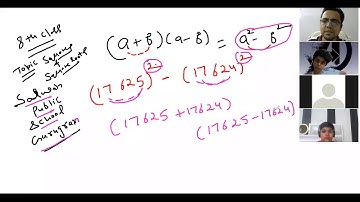 8th class
Topic Squares &
Square Roots
Salwan
Public
School
Gurugram
(a+b)(a-b) = a² - b²
(17625)² - (17624)²
(17625+17624)
(17625-17624)